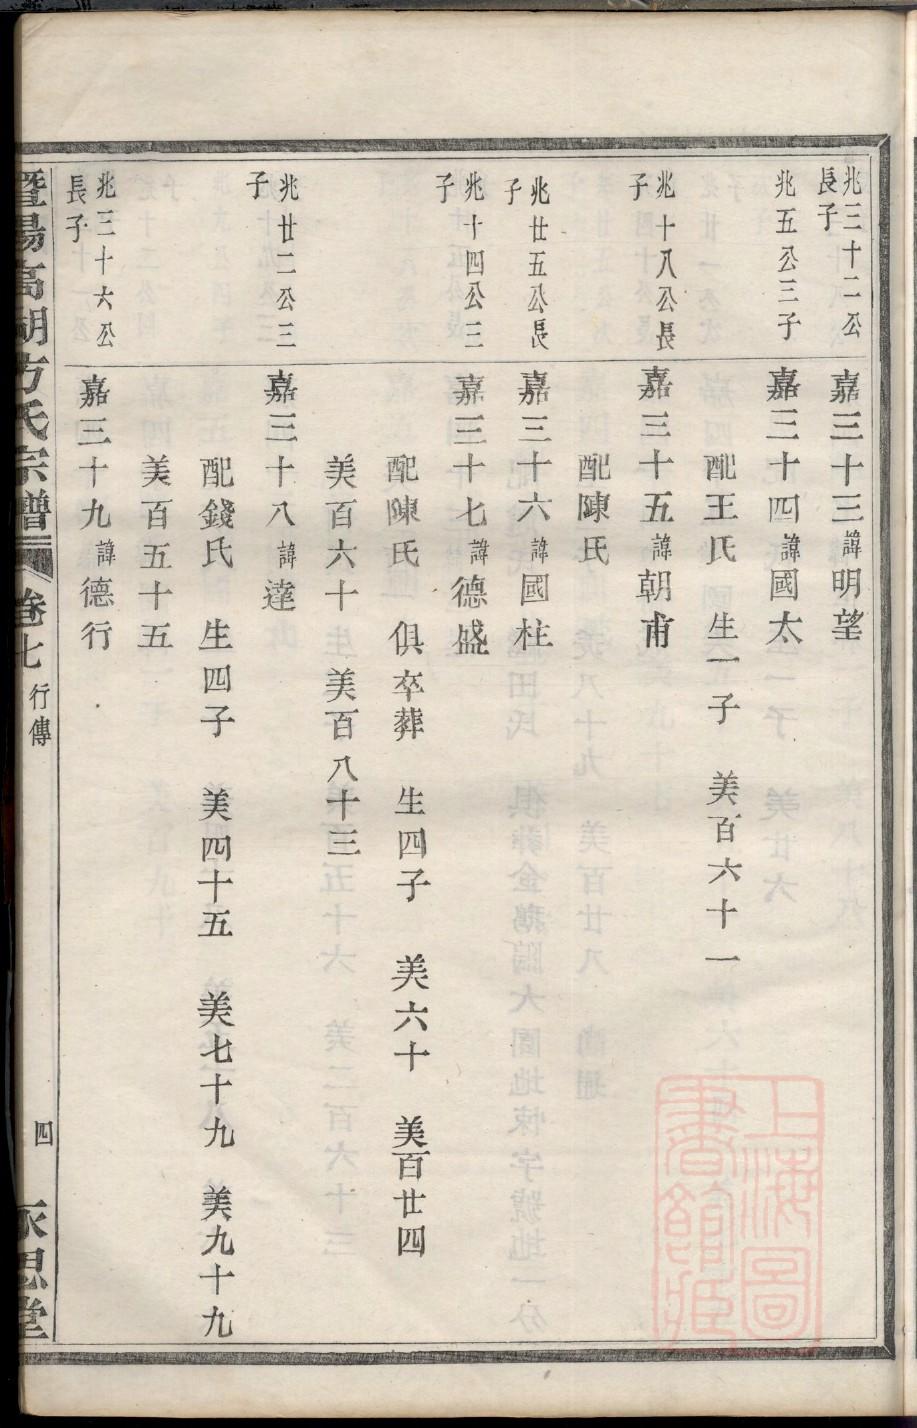 兆三十二公長子
嘉三十三諱明望
兆五公三子
嘉三十四諱國太
配王氏 生一子 美百六十一
兆十八公長子
嘉三十五諱朝甫
配陳氏
兆廿五公長子
嘉三十六諱國柱
兆十四公三子
嘉三十七諱德盛
配陳氏 俱卒葬 生四子 美六十 美百廿四
美百六十 美百八十三
兆廿二公三子
嘉三十八諱達
配錢氏 生四子 美四十五 美七十九 美九十九
美百五十五
兆三十六公長子
嘉三十九諱德行
暨陽高湖方氏宗譜 卷七 行傳 四 永思堂
上海圖書館藏